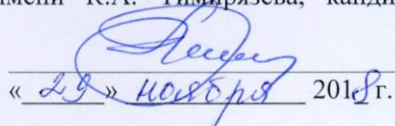 имени К.А. Тимирязева, канди
«29» ноября 2018 г.